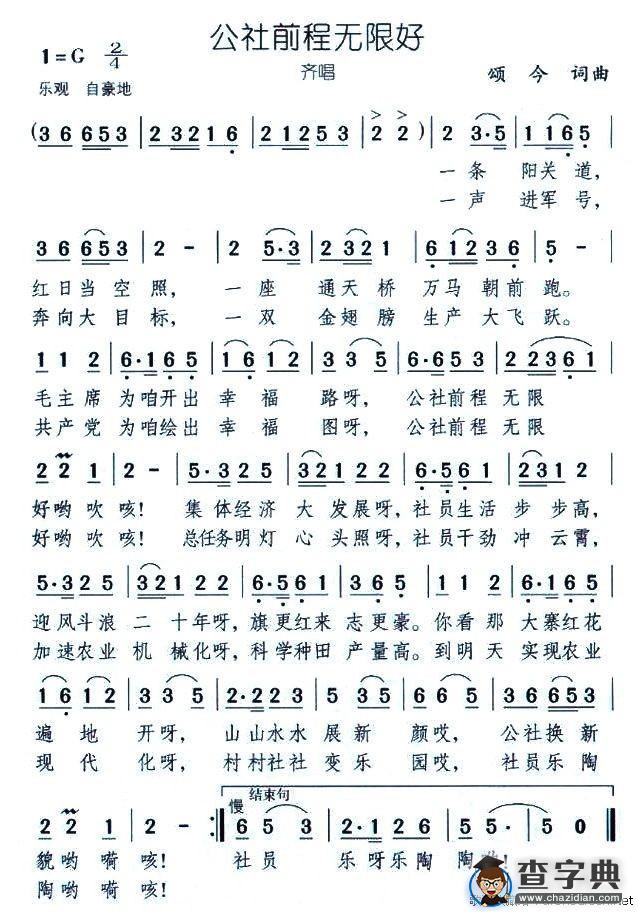 公社前程无限好
1=G 2/4
齐唱
颂今 词曲
乐观 自豪地
(3 6 6 5 3 | 2 3 2 1 6 | 2 1 2 5 3 | 2 2 ) | 2 3·5 | 1 1 6 5 |
一条 阳关 道,
一声 进军 号,
3 6 6 5 3 | 2 - | 2 5·3 | 2 3 2 1 | 6 1 2 3 6 | 5 - |
红日当 空 照, 一 座 通天 桥 万马 朝前 跑。
奔向大 目 标, 一 双 金翅 膀 生产 大飞 跃。
1 1 2 | 6·1 6 5 | 1 6 1 2 | 3 3 5 | 6·1 6 5 | 2 2 3 6 1 |
毛主席 为咱开出 幸 福 路呀, 公社前程 无限
共产党 为咱绘出 幸 福 图呀, 公社前程 无限
2 2 1 | 2 - | 5·3 2 5 | 3 2 1 2 2 | 6·5 6 1 | 2 3 1 2 |
好哟 吹 咳! 集体经济 大 发展呀,社员生活 步 步高,
好哟 吹 咳! 总任务明灯 心 头照呀,社员干劲 冲 云霄,
5·3 2 5 | 3 2 1 2 2 | 6·5 6 1 | 2 3 6 5 | 1 1 2 | 3 5 3 2 |
迎风斗浪 二 十年呀,旗更红来 志更豪。你看那 大寨红花
加速农业 机 械化呀,科学种田 产量高。到明天 实现农业
1 6 1 2 | 3 3 5 | 2·2 2 5 | 3 2 1 2 | 3 6 6 5 3 |
遍 地 开呀, 山山水水 展新 颜哎, 公社换 新
现 代 化呀, 村村社社 变乐 园哎, 社员乐 陶
慢 结束句
2 2 1 | 2 - :| 6 5 3 | 2·1 2 6 | 5 - | 5 0 ‖
貌哟 嗬 咳! 社员 乐呀乐陶 陶
陶哟 嗬 咳!
查字典
www.chazidian.com